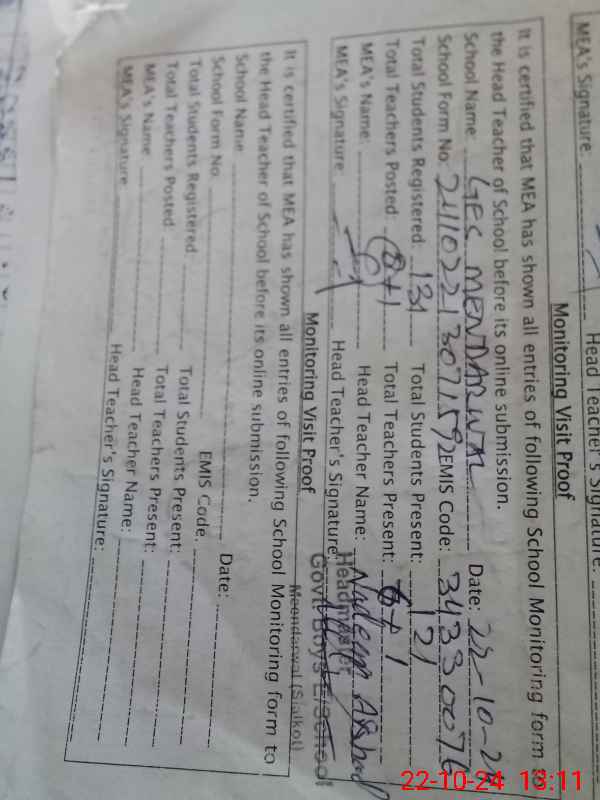 MEA's Signature: Head Teacher's Signature:
Monitoring Visit Proof
It is certified that MEA has shown all entries of following School Monitoring form to
the Head Teacher of School before its online submission.
School Name: GES MENDARWAL Date: 22-10-24
School Form No. 24102213071592 EMIS Code: 34330076
Total Students Registered: 131 Total Students Present: 121
Total Teachers Posted: 8+1 Total Teachers Present: 6+1
MEA's Name: Head Teacher Name: Nadeem Arshad
MEA's Signature: Head Teacher's Signature:
Headmaster
Govt Boys E/School
Meendarwal (Sialkot)
Monitoring Visit Proof
It is certified that MEA has shown all entries of following School Monitoring form to
the Head Teacher of School before its online submission.
School Name: Date:
School Form No. EMIS Code.
Total Students Registered: Total Students Present:
Total Teachers Posted: Total Teachers Present:
MEA's Name Head Teacher Name:
MEA's Signature Head Teacher's Signature:
22-10-24 13:11